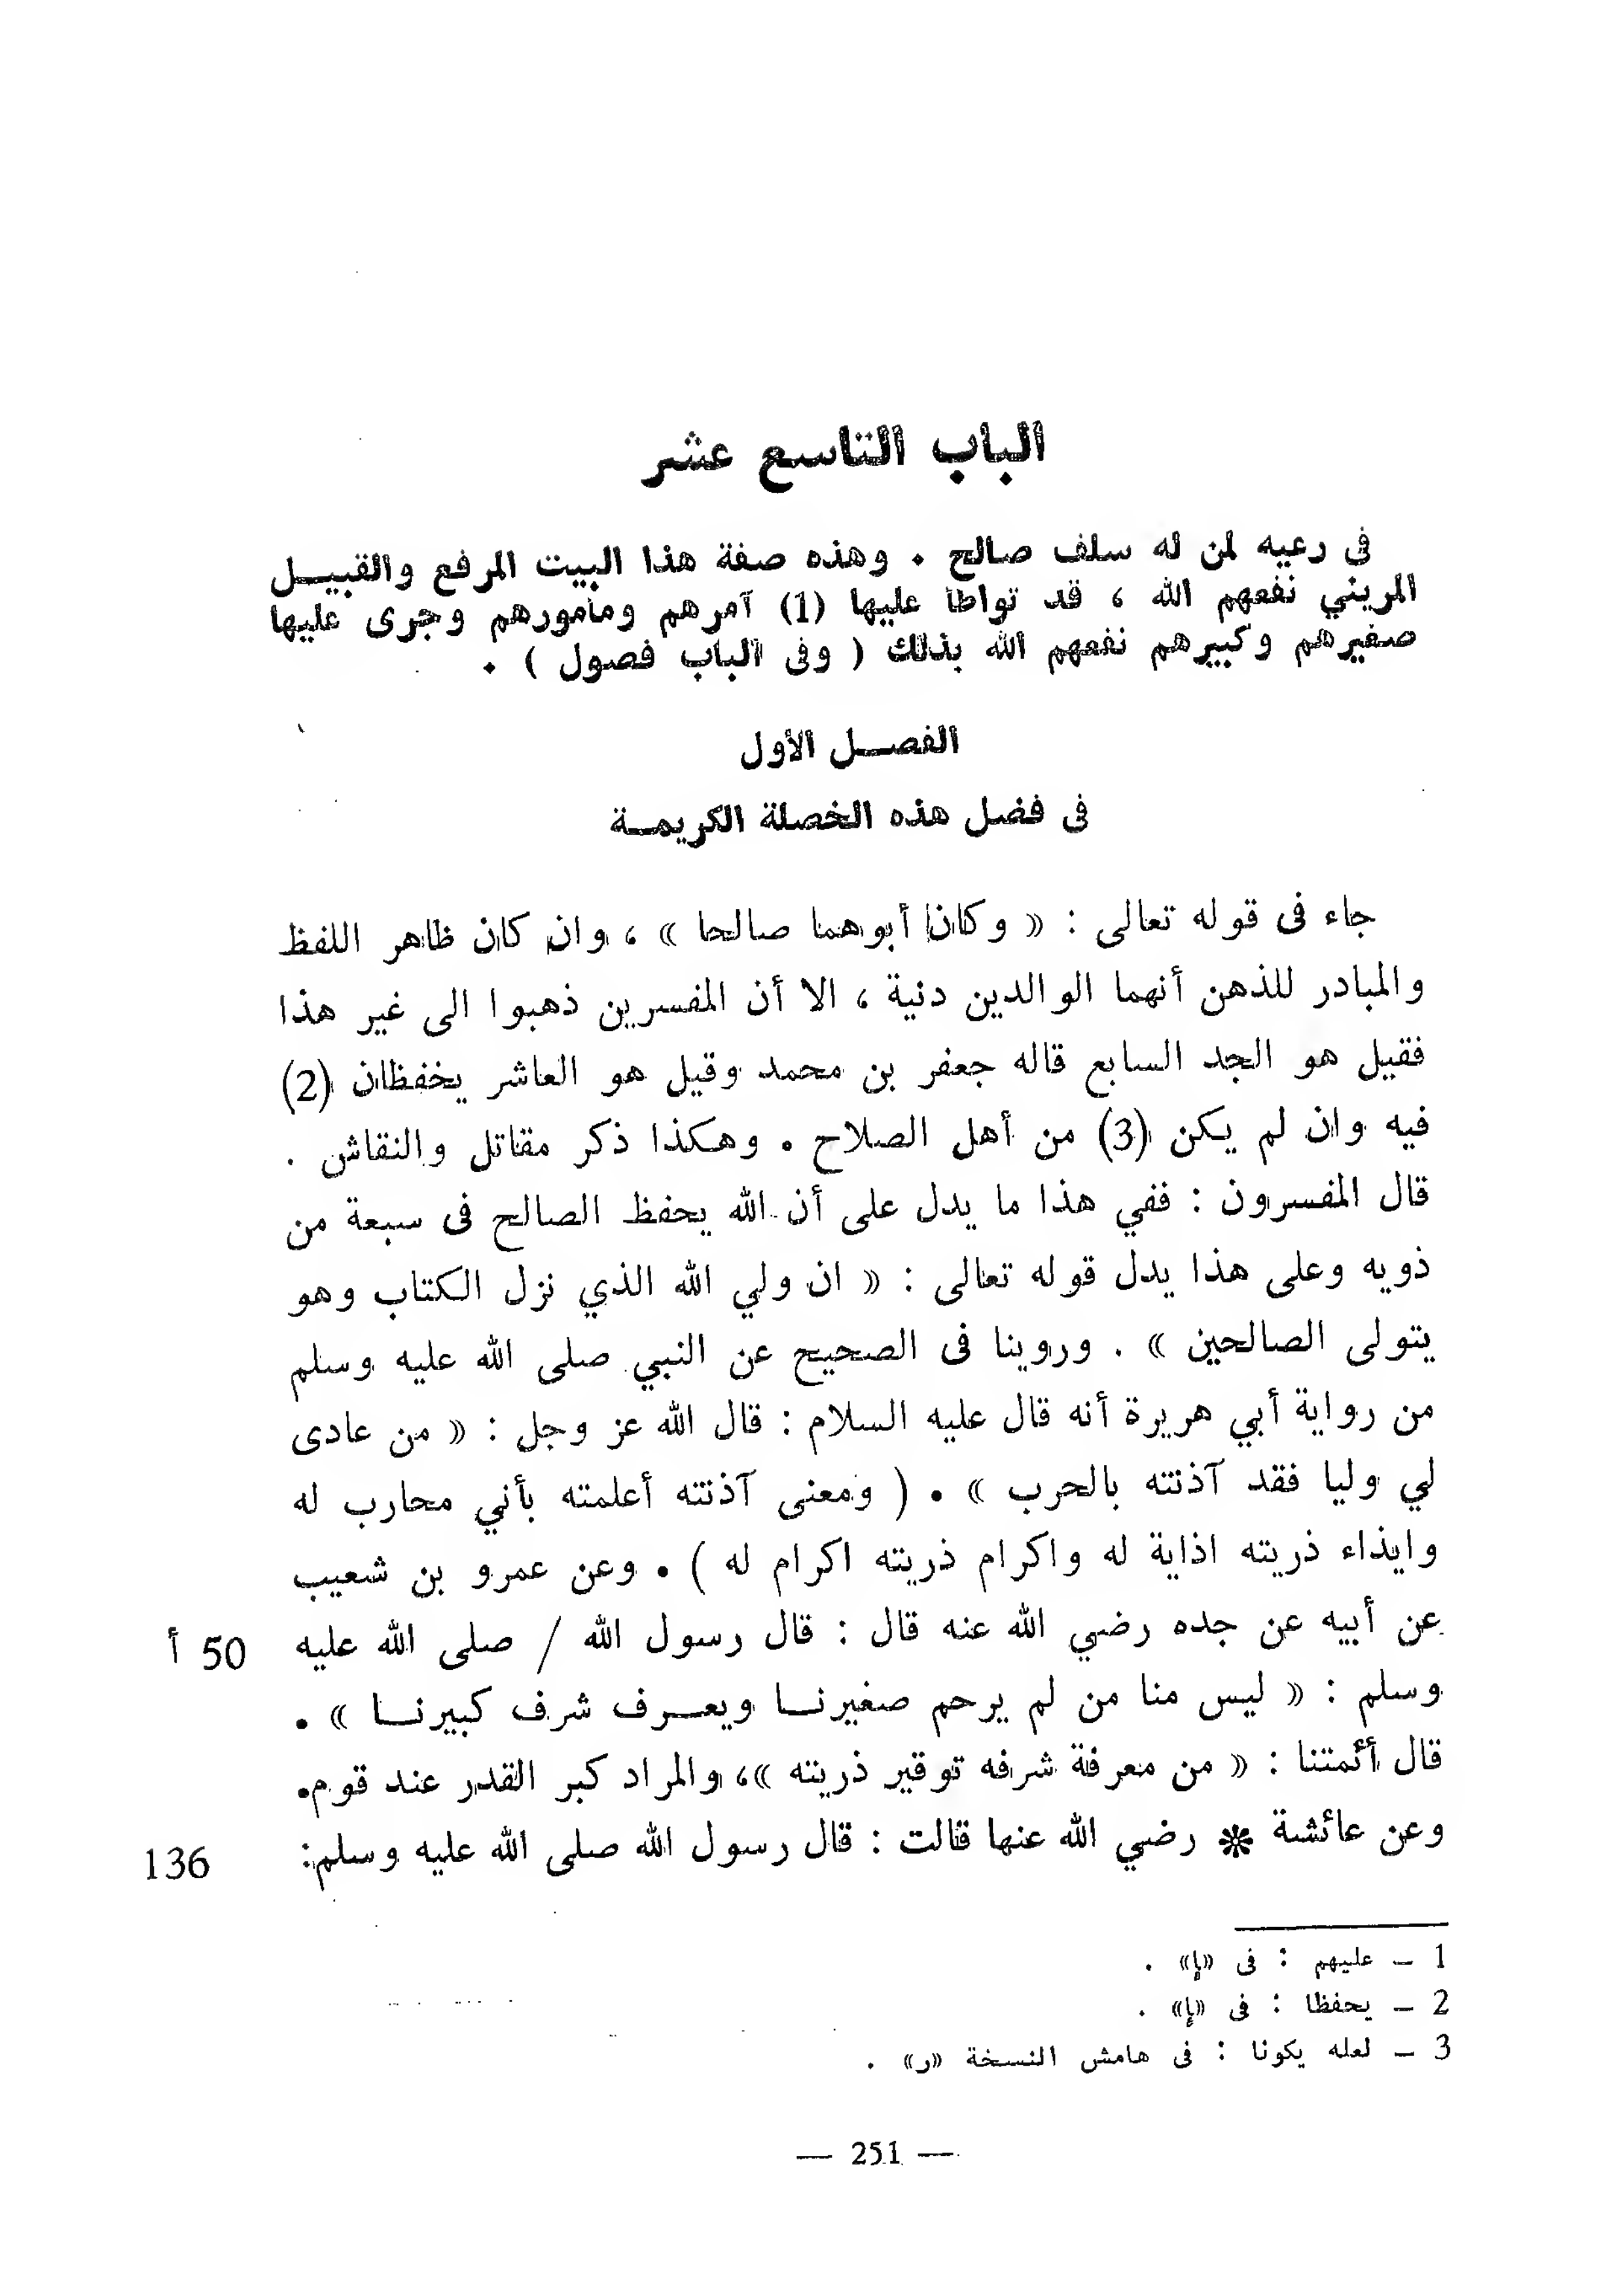 الباب التاسع عشر
فى رعيه لمن له سلف صالح . وهذه صفة هذا البيت المرفع والقبيـــل
المريني نفعهم الله ، قد تواطأ عليها (1) آمرهم ومأمورهم وجرى عليها
صغيرهم وكبيرهم نفعهم الله بذلك ( وفى الباب فصول ) .
الفصـــل الأول
فى فضل هذه الخصلة الكريمـــة
جاء فى قوله تعالى : « وكان أبوهما صالحا » ، وان كان ظاهر اللفظ
والمبادر للذهن أنهما الوالدين دنية ، الا أن المفسرين ذهبوا الى غير هذا
فقيل هو الجد السابع قاله جعفر بن محمد وقيل هو العاشر يخفظان (2)
فيه وان لم يكن (3) من أهل الصلاح . وهكذا ذكر مقاتل والنقاش .
قال المفسرون : ففي هذا ما يدل على أن الله يحفظ الصالح فى سبعة من
ذويه وعلى هذا يدل قوله تعالى : « ان ولي الله الذي نزل الكتاب وهو
يتولى الصالحين » . وروينا فى الصحيح عن النبي صلى الله عليه وسلم
من رواية أبي هريرة أنه قال عليه السلام : قال الله عز وجل : « من عادى
لي وليا فقد آذنته بالحرب » . ( ومعنى آذنته أعلمته بأني محارب له
وايذاء ذريته اذاية له واكرام ذريته اكرام له ) . وعن عمرو بن شعيب
عن أبيه عن جده رضي الله عنه قال : قال رسول الله / صلى الله عليه 50 أ
وسلم : « ليس منا من لم يرحم صغيرنـــا ويعـــرف شرف كبيرنـــا » .
قال أئمتنا : « من معرفة شرفه توقير ذريته »، والمراد كبر القدر عند قوم.
وعن عائشة * رضي الله عنها قالت : قال رسول الله صلى الله عليه وسلم: 136
1 — عليهم : فى «إ» .
2 — يحفظا : فى «إ» .
3 — لعله يكونا : فى هامش النسخة «ر» .
— 251 —